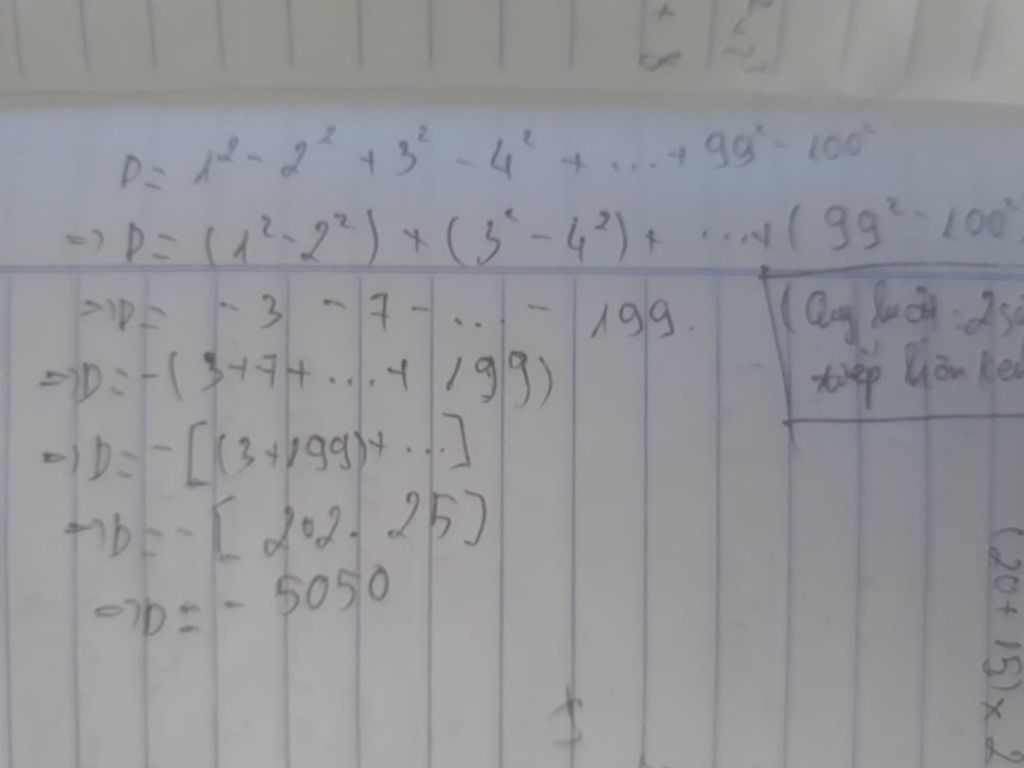 D = 1² - 2² + 3² - 4² + ... + 99² - 100²
=> D = (1² - 2²) + (3² - 4²) + ... + (99² - 100²
=> D = - 3 - 7 - ... - 199.
(Quy luật: 2 số
tiếp liền kề
=> D = - (3 + 7 + ... + 199)
=> D = - [(3 + 199) + ...]
=> D = - [202 . 25]
=> D = - 5050
(20 + 15) x 2